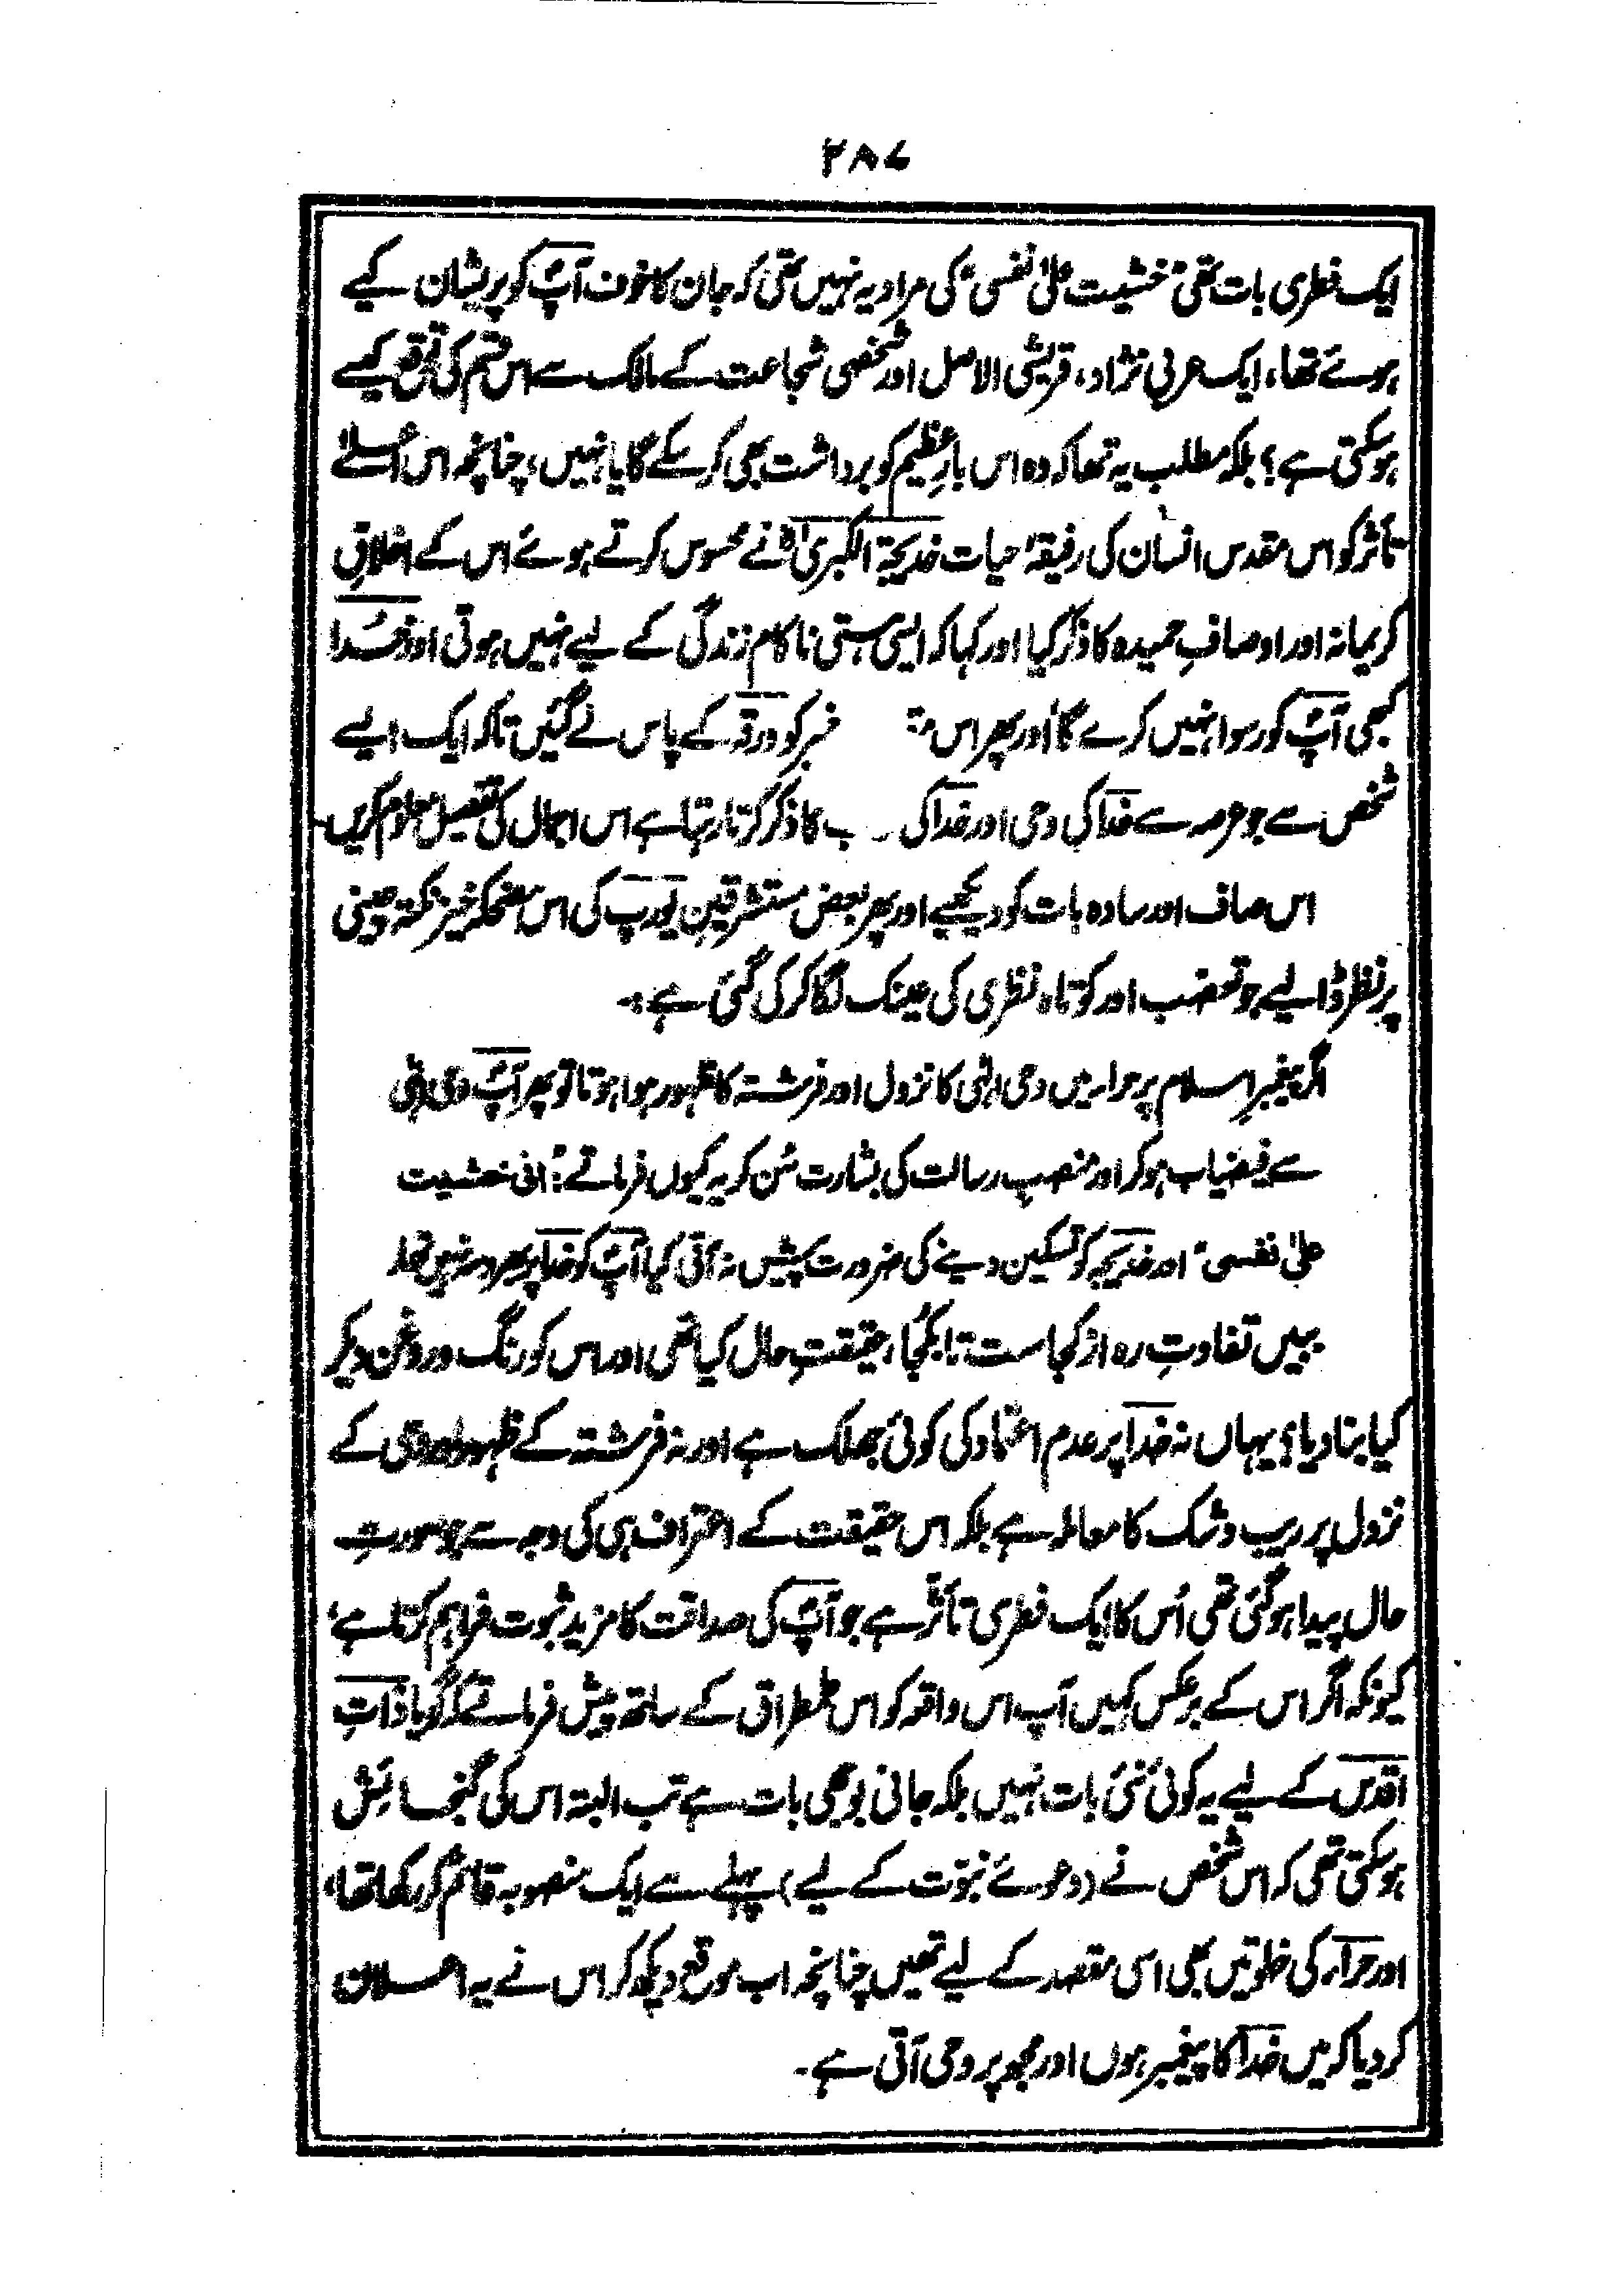 ۲۸۷
ایک فطری بات تھی "خشیت علیٰ نفسی" کی مراد یہ نہیں تھی کہ جان کا خوف آپؐ کو پریشان کیے
ہوئے تھا، ایک عربی نژاد، قریشی الاصل اور شخصی شجاعت کے مالک سے اس قسم کی توقع کیسے
ہو سکتی ہے؟ بلکہ مطلب یہ تھا کہ وہ اس بارِ عظیم کو برداشت بھی کر سکے گا یا نہیں، چنانچہ اس
تأثر کو اس مقدس انسان کی رفیقۂ حیات خدیجۃ الکبریٰؓ نے محسوس کرتے ہوئے اس کے اخلاقِ
کریمانہ اور اوصافِ حمیدہ کا ذکر کیا اور کہا کہ ایسی ہستی ناکام زندگی کے لیے نہیں ہوتی اور خدا
کبھی آپؐ کو رسوا نہیں کرے گا اور پھر اس کو ورقہ کے پاس لے گئیں تاکہ ایک ایسے
شخص سے جو عرصہ سے خدا کی وحی اور خدا کی کا ذکر کرتا رہتا ہے اس اجمال کی تفصیل معلوم کریں۔
اس صاف اور سادہ بات کو دیکھیے اور پھر بعض مستشرقینِ یورپ کی اس مضحکہ خیز نکتہ چینی
پر نظر ڈالیے جو تعصب اور کوتاہ نظری کی عینک لگا کر کی گئی ہے:۔
اگر پیغمبرِ اسلام پر حراء میں وحی الٰہی کا نزول اور فرشتہ کا ظہور ہوا ہوتا تو پھر آپؐ وحی الٰہی
سے فیضیاب ہو کر اور منصبِ رسالت کی بشارت سُن کر یہ کیوں فرماتے: "انی خشیت
علیٰ نفسی" اور خدیجہ کو تسکین دینے کی ضرورت پیش نہ آتی کیا آپؐ کو خدا پر بھروسہ نہیں تھا۔
ببیں تفاوتِ رہ از کجاست تا بکجا، حقیقتِ حال کیا تھی اور اس کو رنگ و روغن دیکر
کیا بنا دیا؟ یہاں نہ خدا پر عدم اعتماد کی کوئی جھلک ہے اور نہ فرشتہ کے ظہور اور وحی کے
نزول پر ریب و شک کا معاملہ ہے بلکہ اس حقیقت کے اعتراف ہی کی وجہ سے جو صورتِ
حال پیدا ہو گئی تھی اُس کا ایک فطری تأثر ہے جو آپؐ کی صداقت کا مزید ثبوت فراہم کرتا ہے،
کیونکہ اگر اس کے برعکس کہیں آپ اس واقعہ کو اس طمطراق کے ساتھ پیش فرماتے کہ گویا ذاتِ
اقدس کے لیے یہ کوئی نئی بات نہیں بلکہ جانی بوجھی بات ہے تب البتہ اس کی گنجائش
ہو سکتی تھی کہ اس شخص نے (دعوئے نبوّت کے لیے) پہلے سے ایک منصوبہ قائم کر رکھا تھا،
اور حراء کی خلوتیں بھی اسی مقصد کے لیے تھیں چنانچہ اب موقع دیکھ کر اس نے یہ اعلان
کر دیا کہ میں خدا کا پیغمبر ہوں اور مجھ پر وحی آتی ہے۔